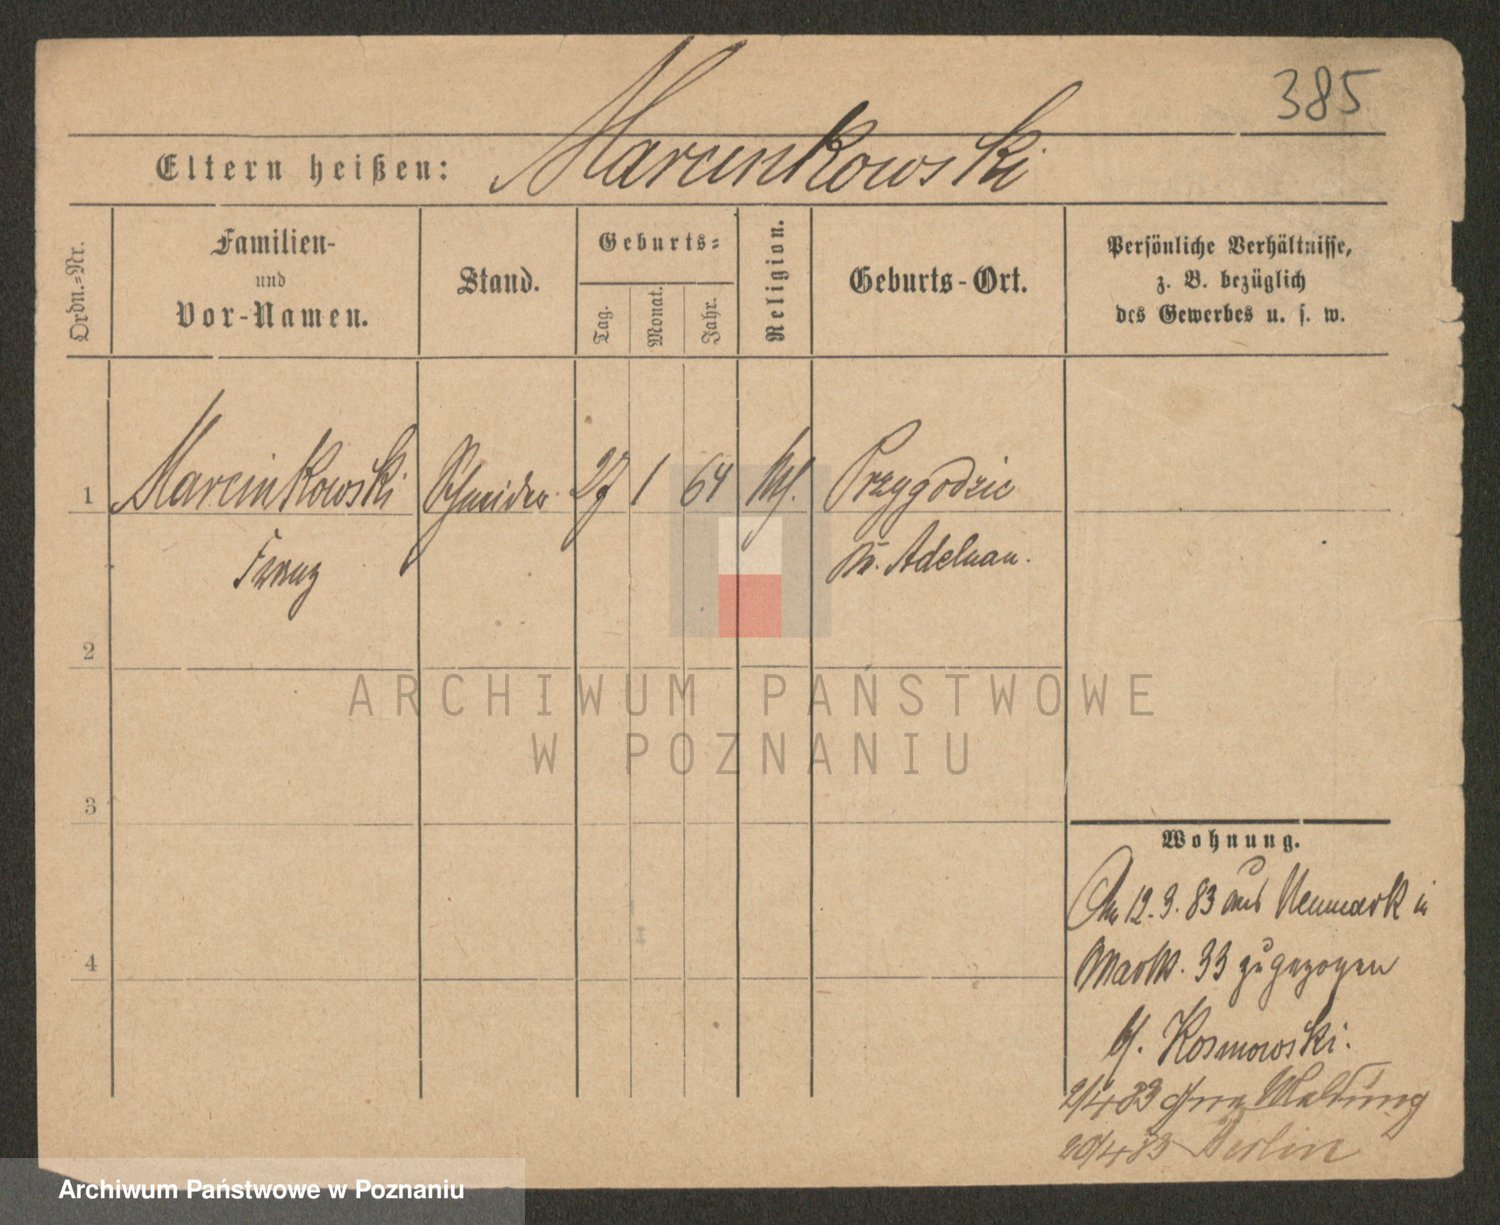 385
Eltern heißen: Marcinkowski
Ordn.=Nr.
Familien-
und
Vor-Namen.
Stand.
Geburts=
Tag.
Monat.
Jahr.
Religion.
Geburts-Ort.
Persönliche Verhältnisse,
z. B. bezüglich
des Gewerbes u. s. w.
1 Marcinkowski Schneider 27 1 64 kth. Przygodzic
Franz Kr. Adelnau.
2
ARCHIWUM PAŃSTWOWE
W POZNANIU
3
Wohnung.
12. 3. 83 aus Neumark in
Markt. 33 zugezogen
b/. Kosmowski.
2/4 83 ohne Meldung
20/4 83 Berlin
4
Archiwum Państwowe w Poznaniu